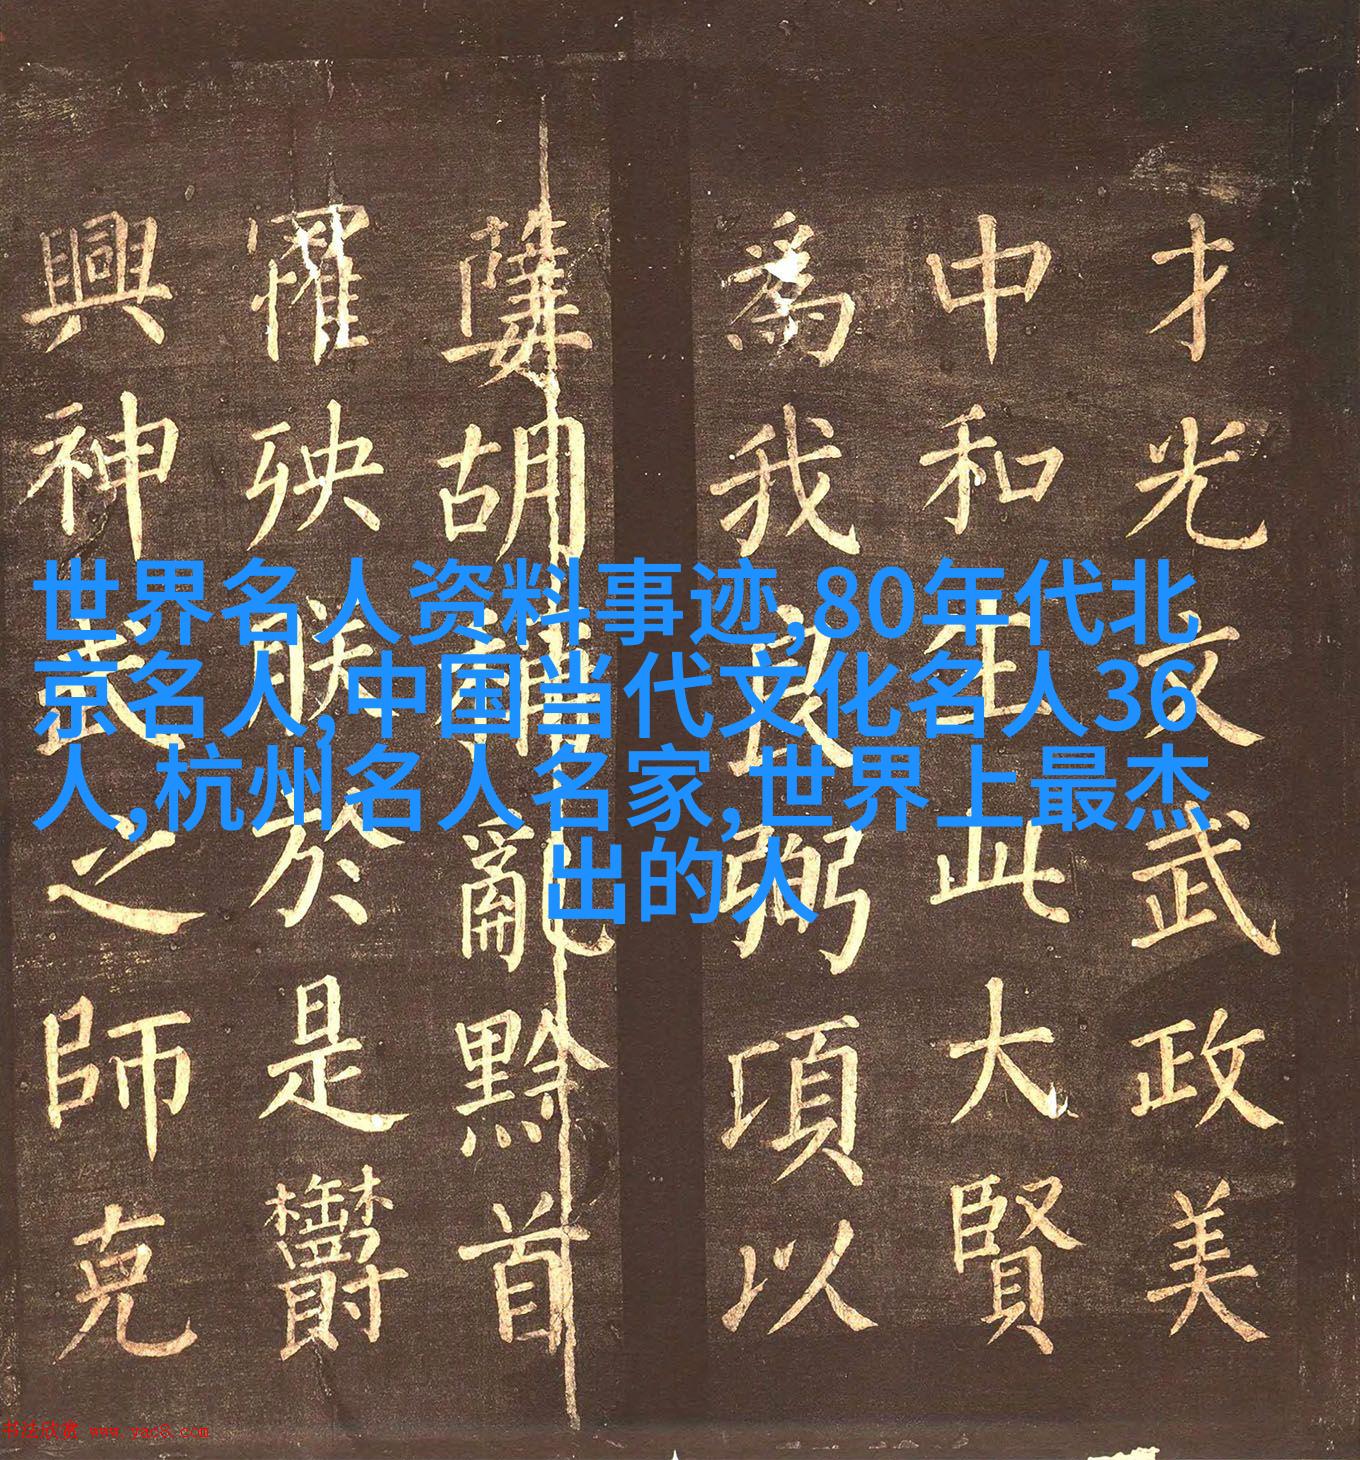 世界名人资料事迹,80年代北
京名人,中国当代文化名人36
人,杭州名人名家,世界上最杰
出的人
才光文武政美
中和生此大賢
爲我弼項以
胡輔亂黔首
罹殃朕於是鬱
興神武之師克
书法欣赏 www.yac8.com